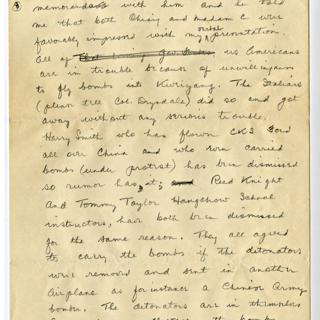 memorandums with him and he told
me that both Chiang and madam C were
favorably impressed with my oral presentation.
All of us Americans
are in trouble because of unwillingness
to fly bombs into Kweiyang. The Italians
(please tell Col. Drysdale) did so and got
away without any serious trouble.
Harry Smith who has flown CKS and
all over China and who even carried
bombs (under protest) has been dismissed
so rumor has it; Reed Knight
and Tommy Taylor Hangchow School
instructors, have both been dismissed
for the same reason. They all agreed
to carry the bombs if the detonators
were removed and sent in another
airplane as for instance a Chinese Army
bomber. The detonators are in thimbles